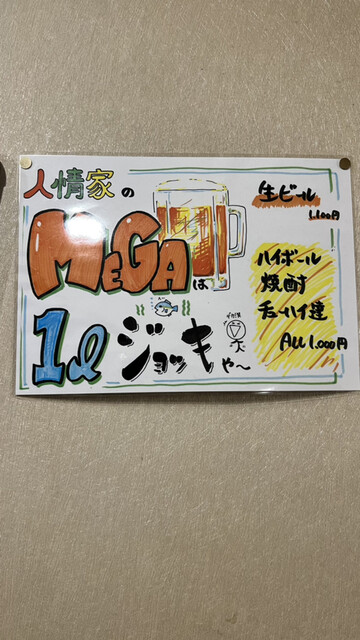 人情家の
MEGAは
1ℓ ジョッキや〜
生ビール
1,100円
ハイボール
焼酎
チューハイ達
ALL 1,000円